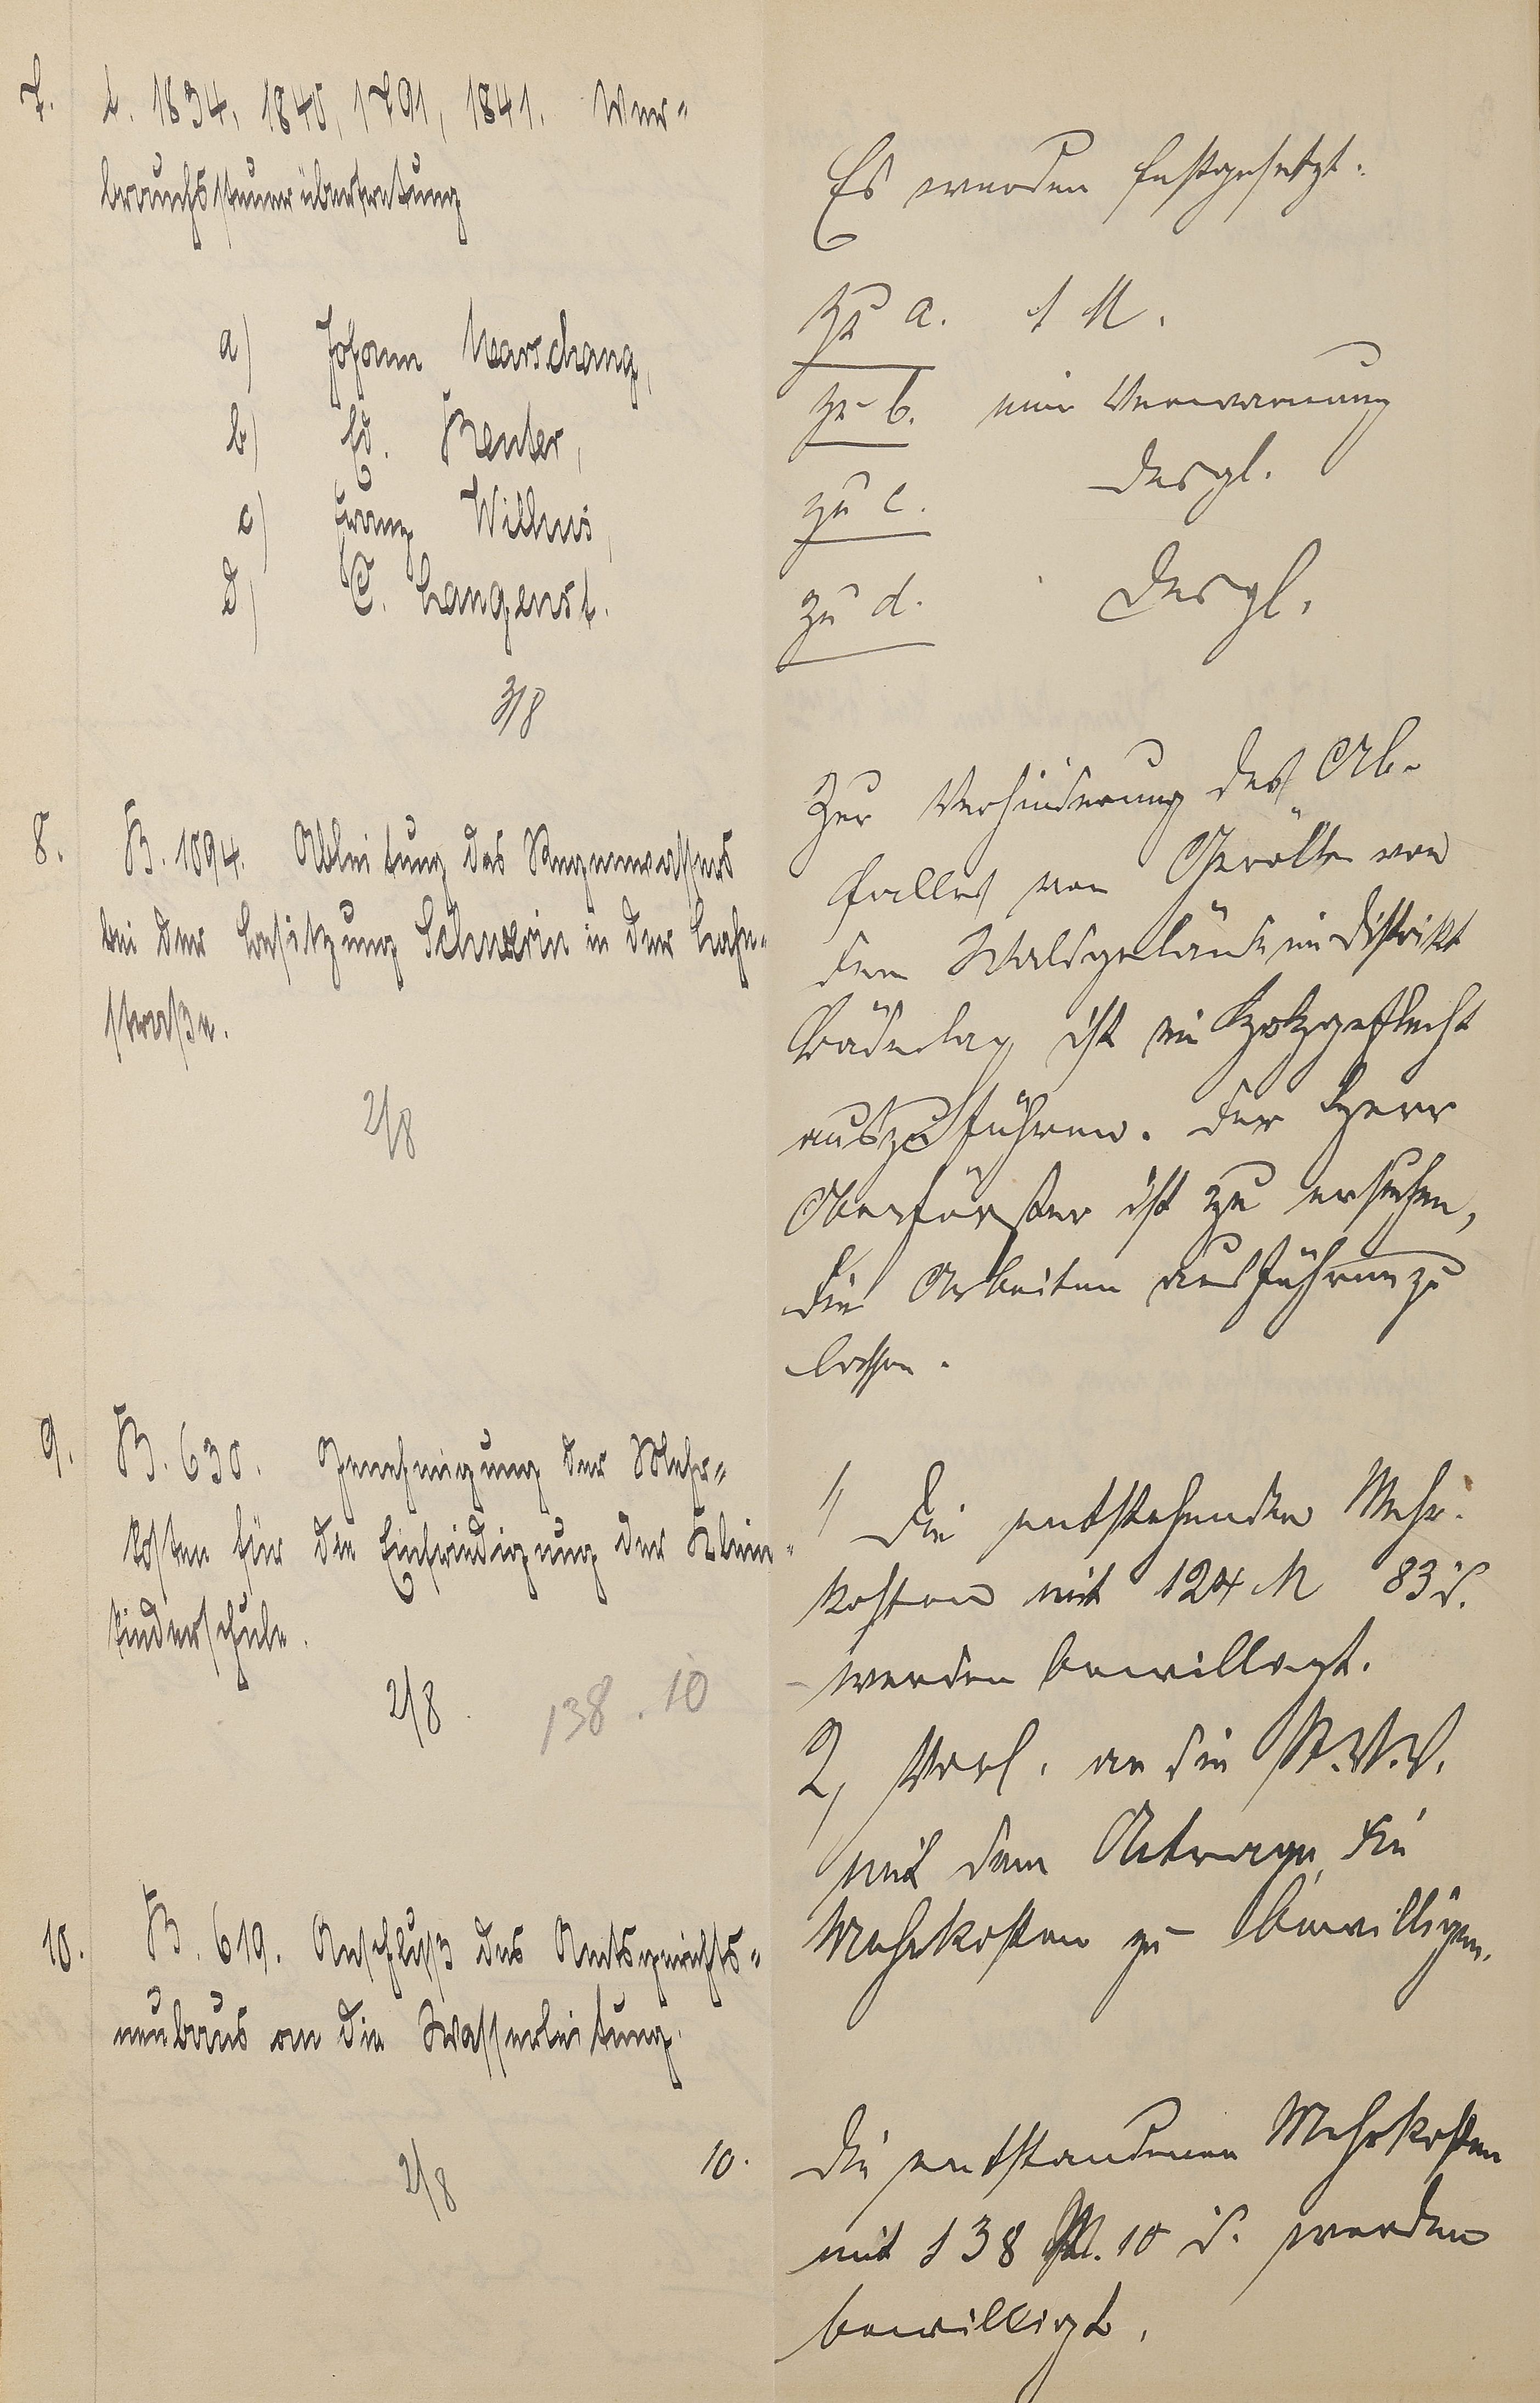 7. L. 1834, 1840, 1791, 1841. Ver=
brauchssteuerübertretung
a) Johann Marschang,
b) Ed. Reuter,
c) Franz Wilhus,
d) C. Langenst.
3/8
Es werden festgesetzt:
zu a. 1 M.
zu b. eine Verwarnung
zu c. desgl.
zu d. desgl.
8. B. 1094. Ableitung des Regenwassers
bei der Besitzung Schwerin in der Lahn=
straße.
2/8
Zur Verhinderung des Ab-
falles von Gerölle von
dem Waldgelände im Distrikt
Bäderlay ist ein Holzgeflecht
auszuführen. Der Herr
Oberförster ist zu ersuchen,
die Arbeiten ausführen zu
lassen.
9. B. 630. Genehmigung der Mehr=
kosten für die Einfriedigung der Klein=
kinderschule.
2/8. 138.10
1, Die entstehenden Mehr-
kosten mit 124 M 83 d.
werden bewilligt.
2, Vorl. an die St.V.V.
mit dem Antrage, die
Mehrkosten zu bewilligen.
10. B. 619. Anschluß des Amtsgerichts=
neubaus an die Wasserleitung.
2/8
10. Die entstandenen Mehrkosten
mit 138 M. 10 d. werden
bewilligt.